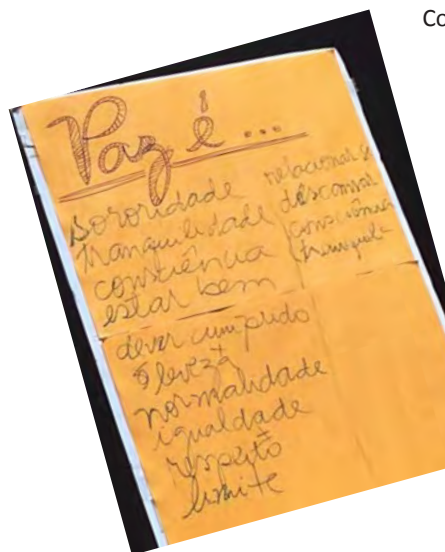 Co
Paz é...
sororidade
tranquilidade
consciência
estar bem
relacionar-se
descansar
consciência
tranquila
dever cumprido
leveza
normalidade
igualdade
respeito
limite